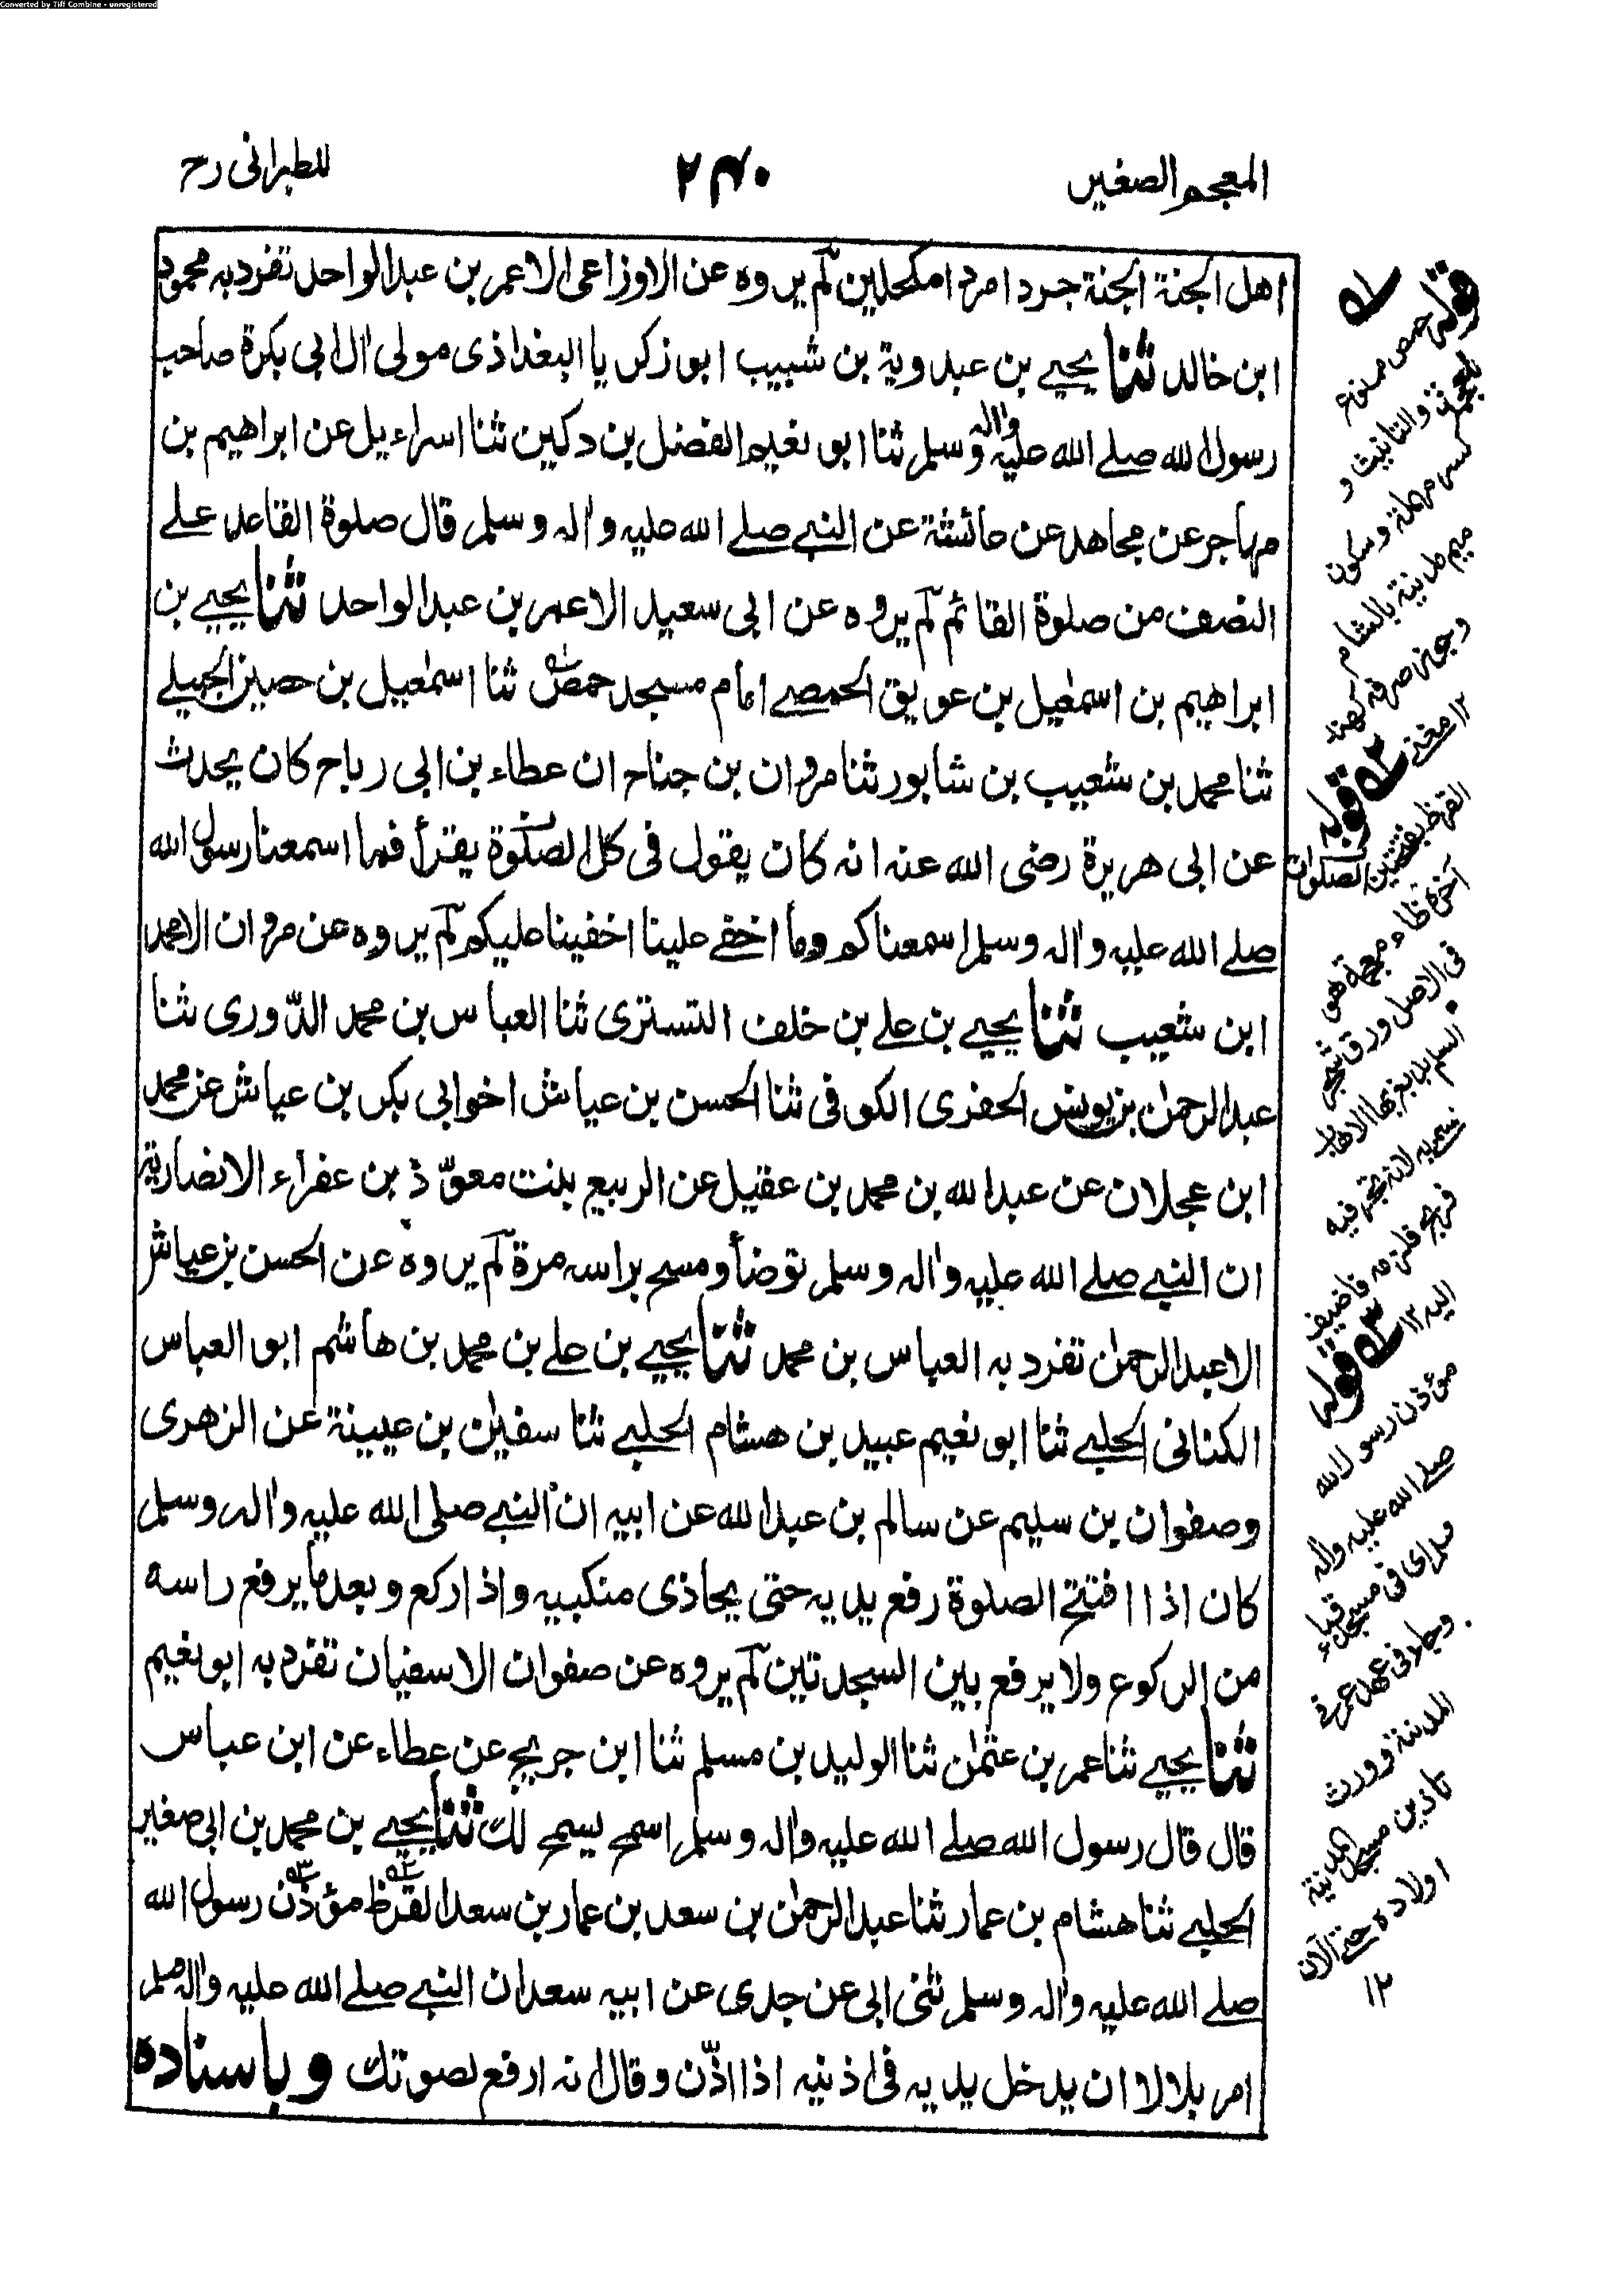 Converted by Tiff Combine - unregistered
المعجم الصغير
۲۴۰
للطبرانی رح
اهل الجنة الجنة جردا مردا مكحلين لم يروه عن الاوزاعی الا عمر بن عبد الواحد تفرد به محمود
ابن خالد ثنا يحيے بن عبدوية بن شبيب ابو زكريا البغداذی مولی ال ابی بكرة صاحب
رسول الله صلے الله عليه واله وسلم ثنا ابو نعيم الفضل بن دكين ثنا اسراءيل عن ابراهيم بن
مهاجر عن مجاهد عن عائشة عن النبے صلے الله عليه واله وسلم قال صلوة القاعد علے
النصف من صلوة القائم لم يروه عن ابی سعيد الا عمر بن عبد الواحد ثنا يحيے بن
ابراهيم بن اسمٰعيل بن عويق الحمصے امام مسجد حمص ثنا اسمٰعيل بن حصين الجبيلے
ثنا محمد بن شعيب بن شابور ثنا مروان بن جناح ان عطاء بن ابی رباح كان يحدث
عن ابی هريرة رضی الله عنه انه كان يقول فی كل الصلوة يقرأ فما اسمعنا رسول الله
صلے الله عليه واله وسلم اسمعناكم وما اخفے علينا اخفينا عليكم لم يروه عن مروان الا محمد
ابن شعيب ثنا يحيے بن علے بن خلف التستری ثنا العباس بن محمد الدّوری ثنا
عبد الرحمٰن بن يونس الحفری الكوفی ثنا الحسن بن عياش اخو ابی بكر بن عياش عن محمد
ابن عجلان عن عبد الله بن محمد بن عقيل عن الربيع بنت معوّذ بن عفراء الانصارية
ان النبے صلے الله عليه واله وسلم توضأ ومسح براسه مرة لم يروه عن الحسن بن عياش
الا عبد الرحمٰن تفرد به العباس بن محمد ثنا يحيے بن علے بن محمد بن هاشم ابو العباس
الكنانی الحلبے ثنا ابو نعيم عبيد بن هشام الحلبے ثنا سفيٰن بن عيينة عن الزهری
وصفوان بن سليم عن سالم بن عبد الله عن ابيه ان النبے صلی الله عليه واله وسلم
كان اذا افتتح الصلوة رفع يديه حتی يحاذی منكبيه واذا ركع وبعد ما يرفع راسه
من الركوع ولا يرفع بين السجدتين لم يروه عن صفوان الا سفيان تفرد به ابو نعيم
ثنا يحيے ثنا عمر بن عثمٰن ثنا الوليد بن مسلم ثنا ابن جريج عن عطاء عن ابن عباس
قال قال رسول الله صلے الله عليه واله وسلم اسمح يسمح لك ثنا يحيے بن محمد بن ابی صغير
الحلبے ثنا هشام بن عمار ثنا عبد الرحمٰن بن سعد بن عمار بن سعد القرظ مؤذن رسول الله
صلے الله عليه واله وسلم ثنی ابی عن جدی عن ابيه سعد ان النبے صلے الله عليه واله وسلم
امر بلالا ان يدخل يديه فی اذنيه اذا اذّن وقال انه ارفع لصوتك وباسناده
قوله حمص ممنوع
للعجمة والتانيث و
كسر مهملة وسكون
ميم مدينة بالشام
وجوز صرفه كهند
۱۲ مغنی قوله
القرظ بفتحتين
آخره ظاء معجمة هی
فی الاصل ورق شجر
السلم يدبغ بها الاهاب
سمی به لانه تجر فيه
فربح فلزمه فاضيف
اليه ۱۲ قوله
مؤذن رسول الله
صلے الله عليه واله
وسلم ای فی مسجد قباء
وجاء فی عهد عمر فی
المدينة وورث
تاذين مسجد المدينة
اولاده حتے الآن
۱۲